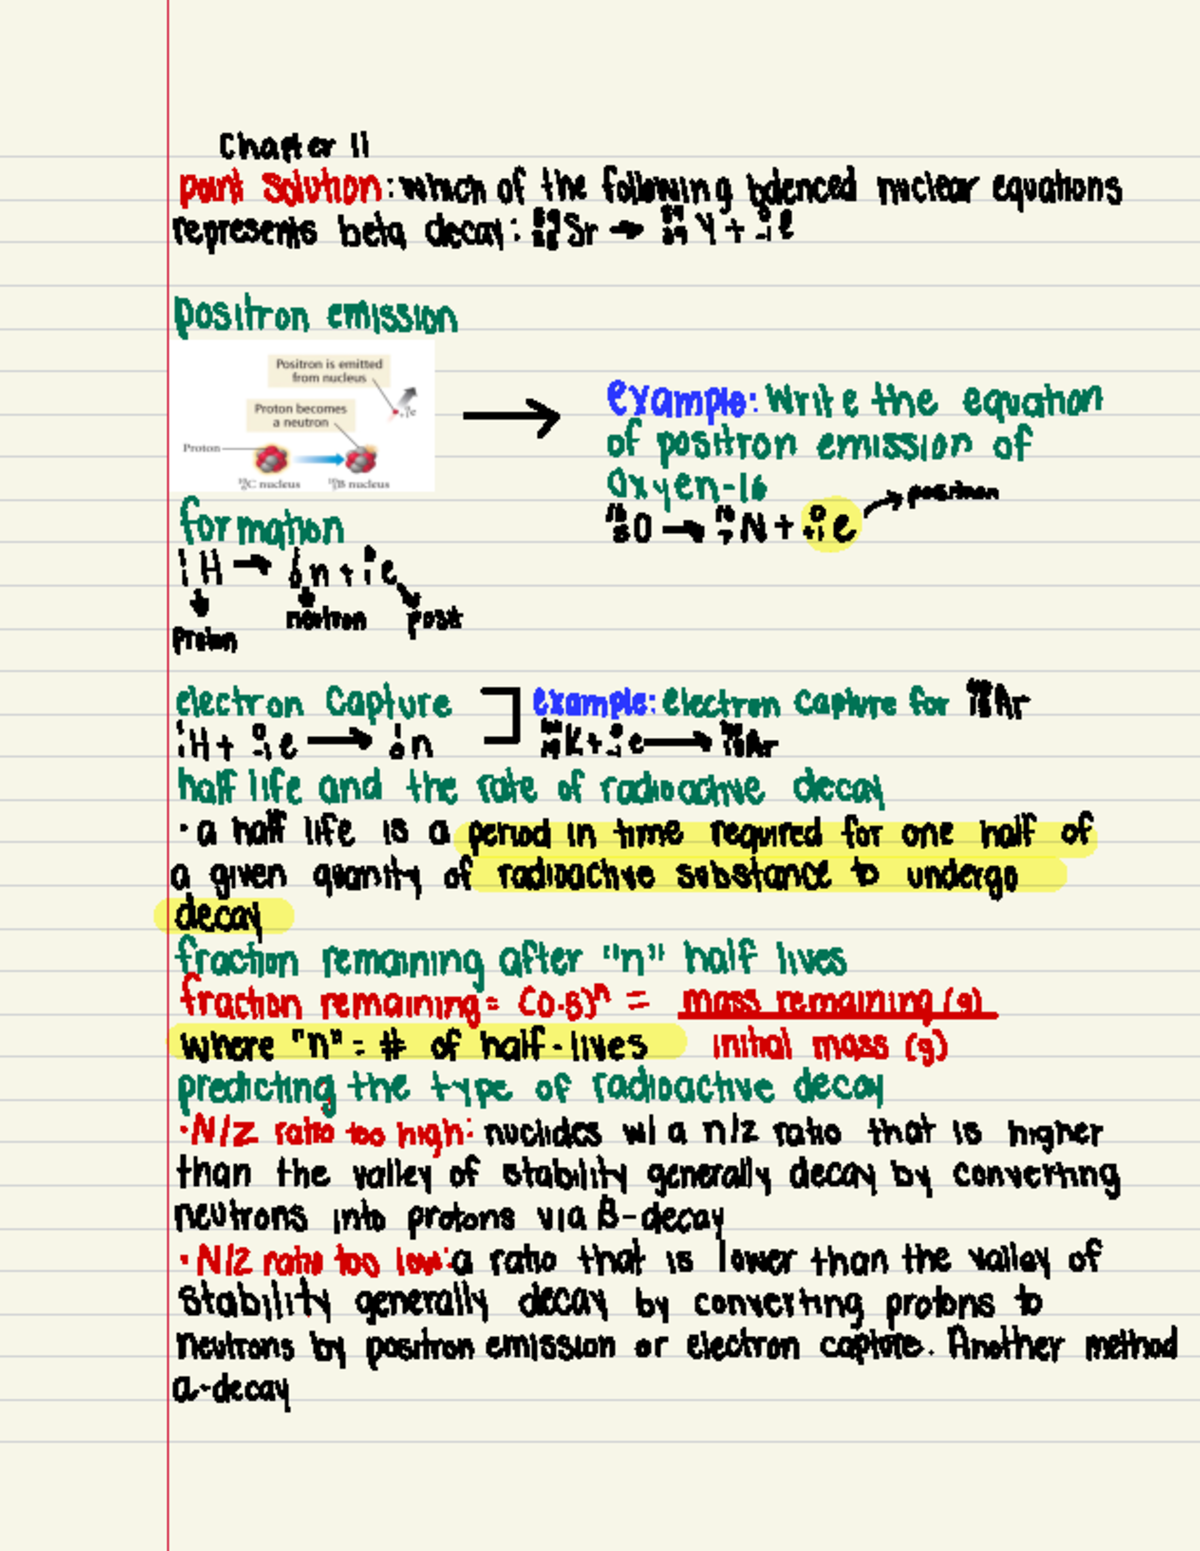 Chapter 11
point solution: which of the following balenced nuclear equations
represents beta decay: Sr → Y + e
positron emission
Positron is emitted
from nucleus
Proton becomes
a neutron
Proton
C nucleus
B nucleus
example: Write the equation
of positron emission of
Oxyen-16
O → N + ⁰₊₁e → positron
formation
¹₁H → ¹₀n + e
Proton
neutron
posit
electron Capture
example: electron Capture for Ar
¹₁H + ⁰₋₁e → ¹₀n
K + e → Ar
half life and the rate of radioactive decay
• a half life is a period in time required for one half of
a given quanity of radioactive substance to undergo
decay
fraction remaining after "n" half lives
fraction remaining = (0.5)ⁿ = mass remaining (g)
where "n" = # of half-lives initial mass (g)
predicting the type of radioactive decay
• N/Z ratio too high: nuclides w/ a n/z ratio that is higher
than the valley of stability generally decay by converting
neutrons into protons via B-decay
• N/Z ratio too low: a ratio that is lower than the valley of
stability generally decay by converting protons to
neutrons by positron emission or electron capture. Another method
a-decay